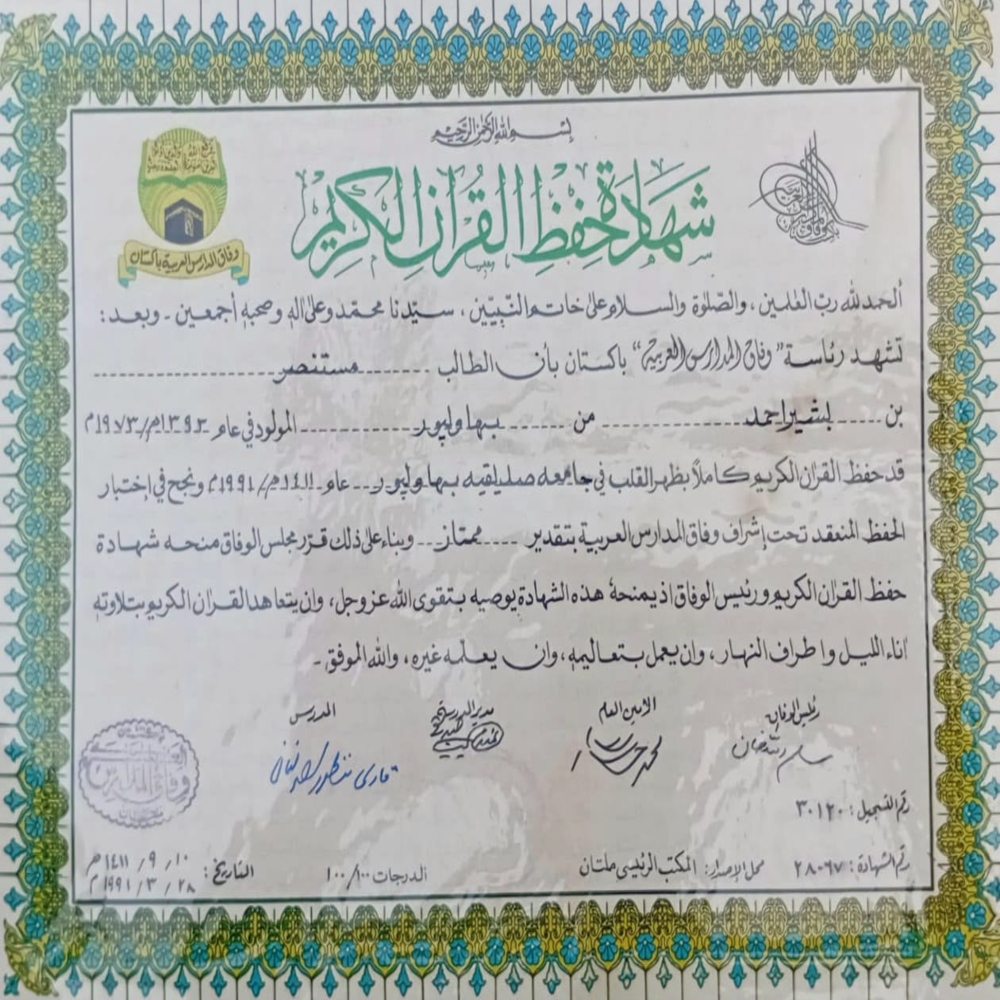 بسم الله الرحمن الرحيم
شهادة حفظ القرآن الكريم
وفاق المدارس العربية باكستان
الحمد لله رب العٰلمين، والصلوٰة والسلام علىٰ خاتم النّبيّين، سيّدنا محمّد وعلىٰ اٰلهٖ وصحبهٖ أجمعين - وبعد:
تشهد رئاسة "وفاق المدارس العربية" باكستان بأن الطالب مستنصر
بن بشير احمد من بهاولپور المولود في عام ١٣٩٣ھ/١٩٧٣م
قد حفظ القراٰن الكريم كاملاً بظهر القلب في جامعه صديقيه بهاولپور عام ١٤١١ھ/١٩٩١م ونجح في إختبار
الحفظ المنعقد تحت إشراف وفاق المدارس العربية بتقدير ممتاز وبناء علىٰ ذلك قرّر مجلس الوفاق منحه شهادة
حفظ القراٰن الكريم ورئيس الوفاق اذ يمنحهٗ هذه الشهادة يوصيه بتقوى الله عزوجل، وان يتعاهد القراٰن الكريم بتلاوتهٖ
اٰناء الليل واطراف النهار، وان يعمل بتعاليمهٖ، وان يعلمه غيره، والله الموفق -
رئيس الوفاق الامين العام مدير المدرسة المدرس
رقم التسجيل: ٣٠١٢٠
رقم الشهادة: ٢٨٠٦٧ محل الإصدار: المكتب الرئيسي ملتان الدرجات ١٠٠/١٠٠ التاريخ: ١٠/٩/١٤١١ھ
٢٨/٣/١٩٩١م